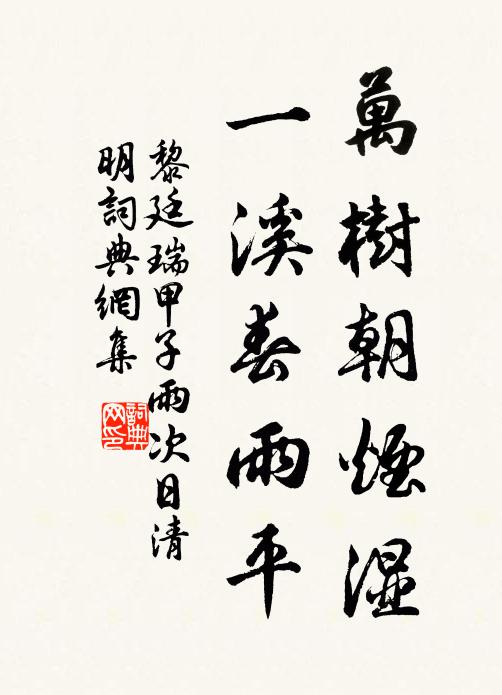 萬樹朝煙濕
一溪春雨平
黎廷瑞甲子雨次日清
明詞典網集
詞典
网印